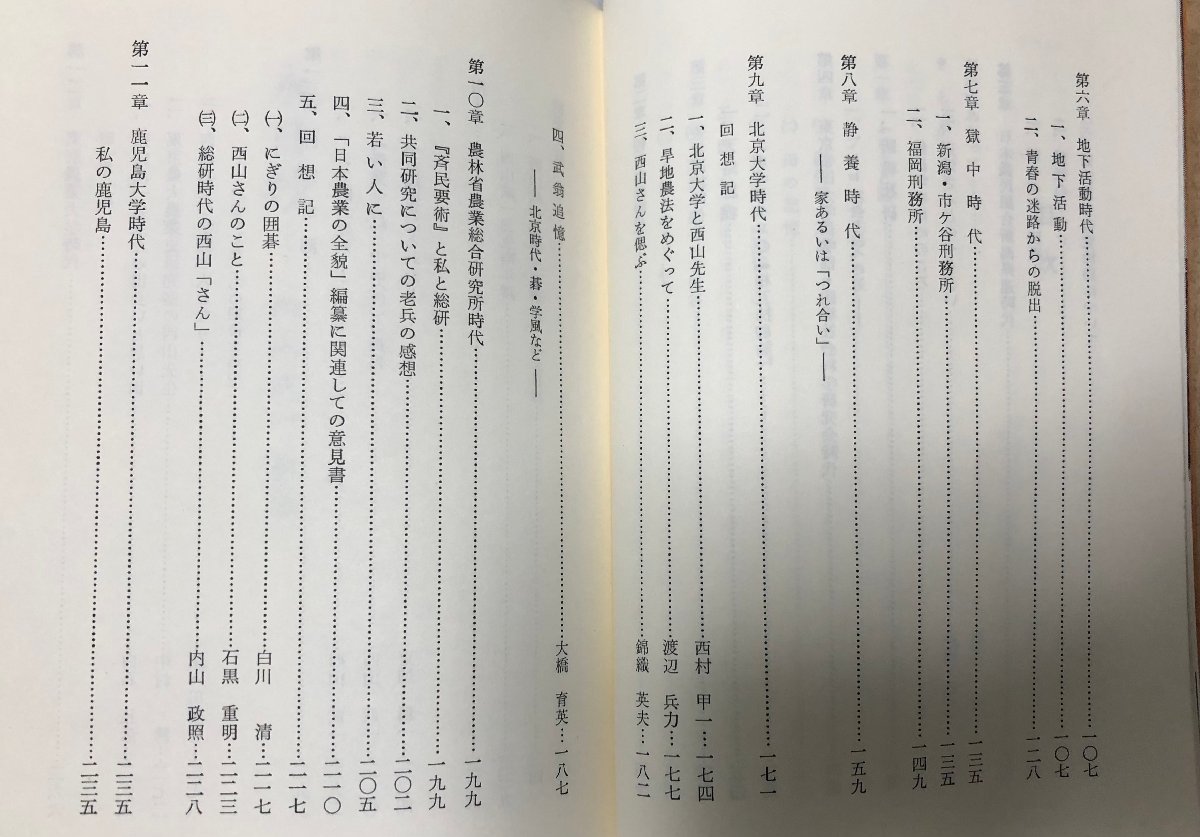 第六章 地下活動時代…一〇七
一、地下活動…一〇七
二、青春の迷路からの脱出…一二八
第七章 獄中時代…一三五
一、新潟・市ケ谷刑務所…一三五
二、福岡刑務所…一四九
第八章 静養時代…一五九
――家あるいは「つれ合い」――
第九章 北京大学時代…一七一
回想記
一、北京大学と西山先生…西村 甲一…一七四
二、旱地農法をめぐって…渡辺 兵力…一七七
三、西山さんを偲ぶ…錦織 英夫…一八二
四、武翁追憶…大橋 育英…一八七
――北京時代・碁・学風など――
第一〇章 農林省農業総合研究所時代…一九九
一、『斉民要術』と私と総研…一九九
二、共同研究についての老兵の感想…二〇二
三、若い人に…二〇五
四、「日本農業の全貌」編纂に関連しての意見書…二一〇
五、回想記…二一七
㈠、にぎりの囲碁…白川 清…二一七
㈡、西山さんのこと…石黒 重明…二二三
㈢、総研時代の西山「さん」…内山 政照…二二八
第一一章 鹿児島大学時代…二三五
私の鹿児島…二三五